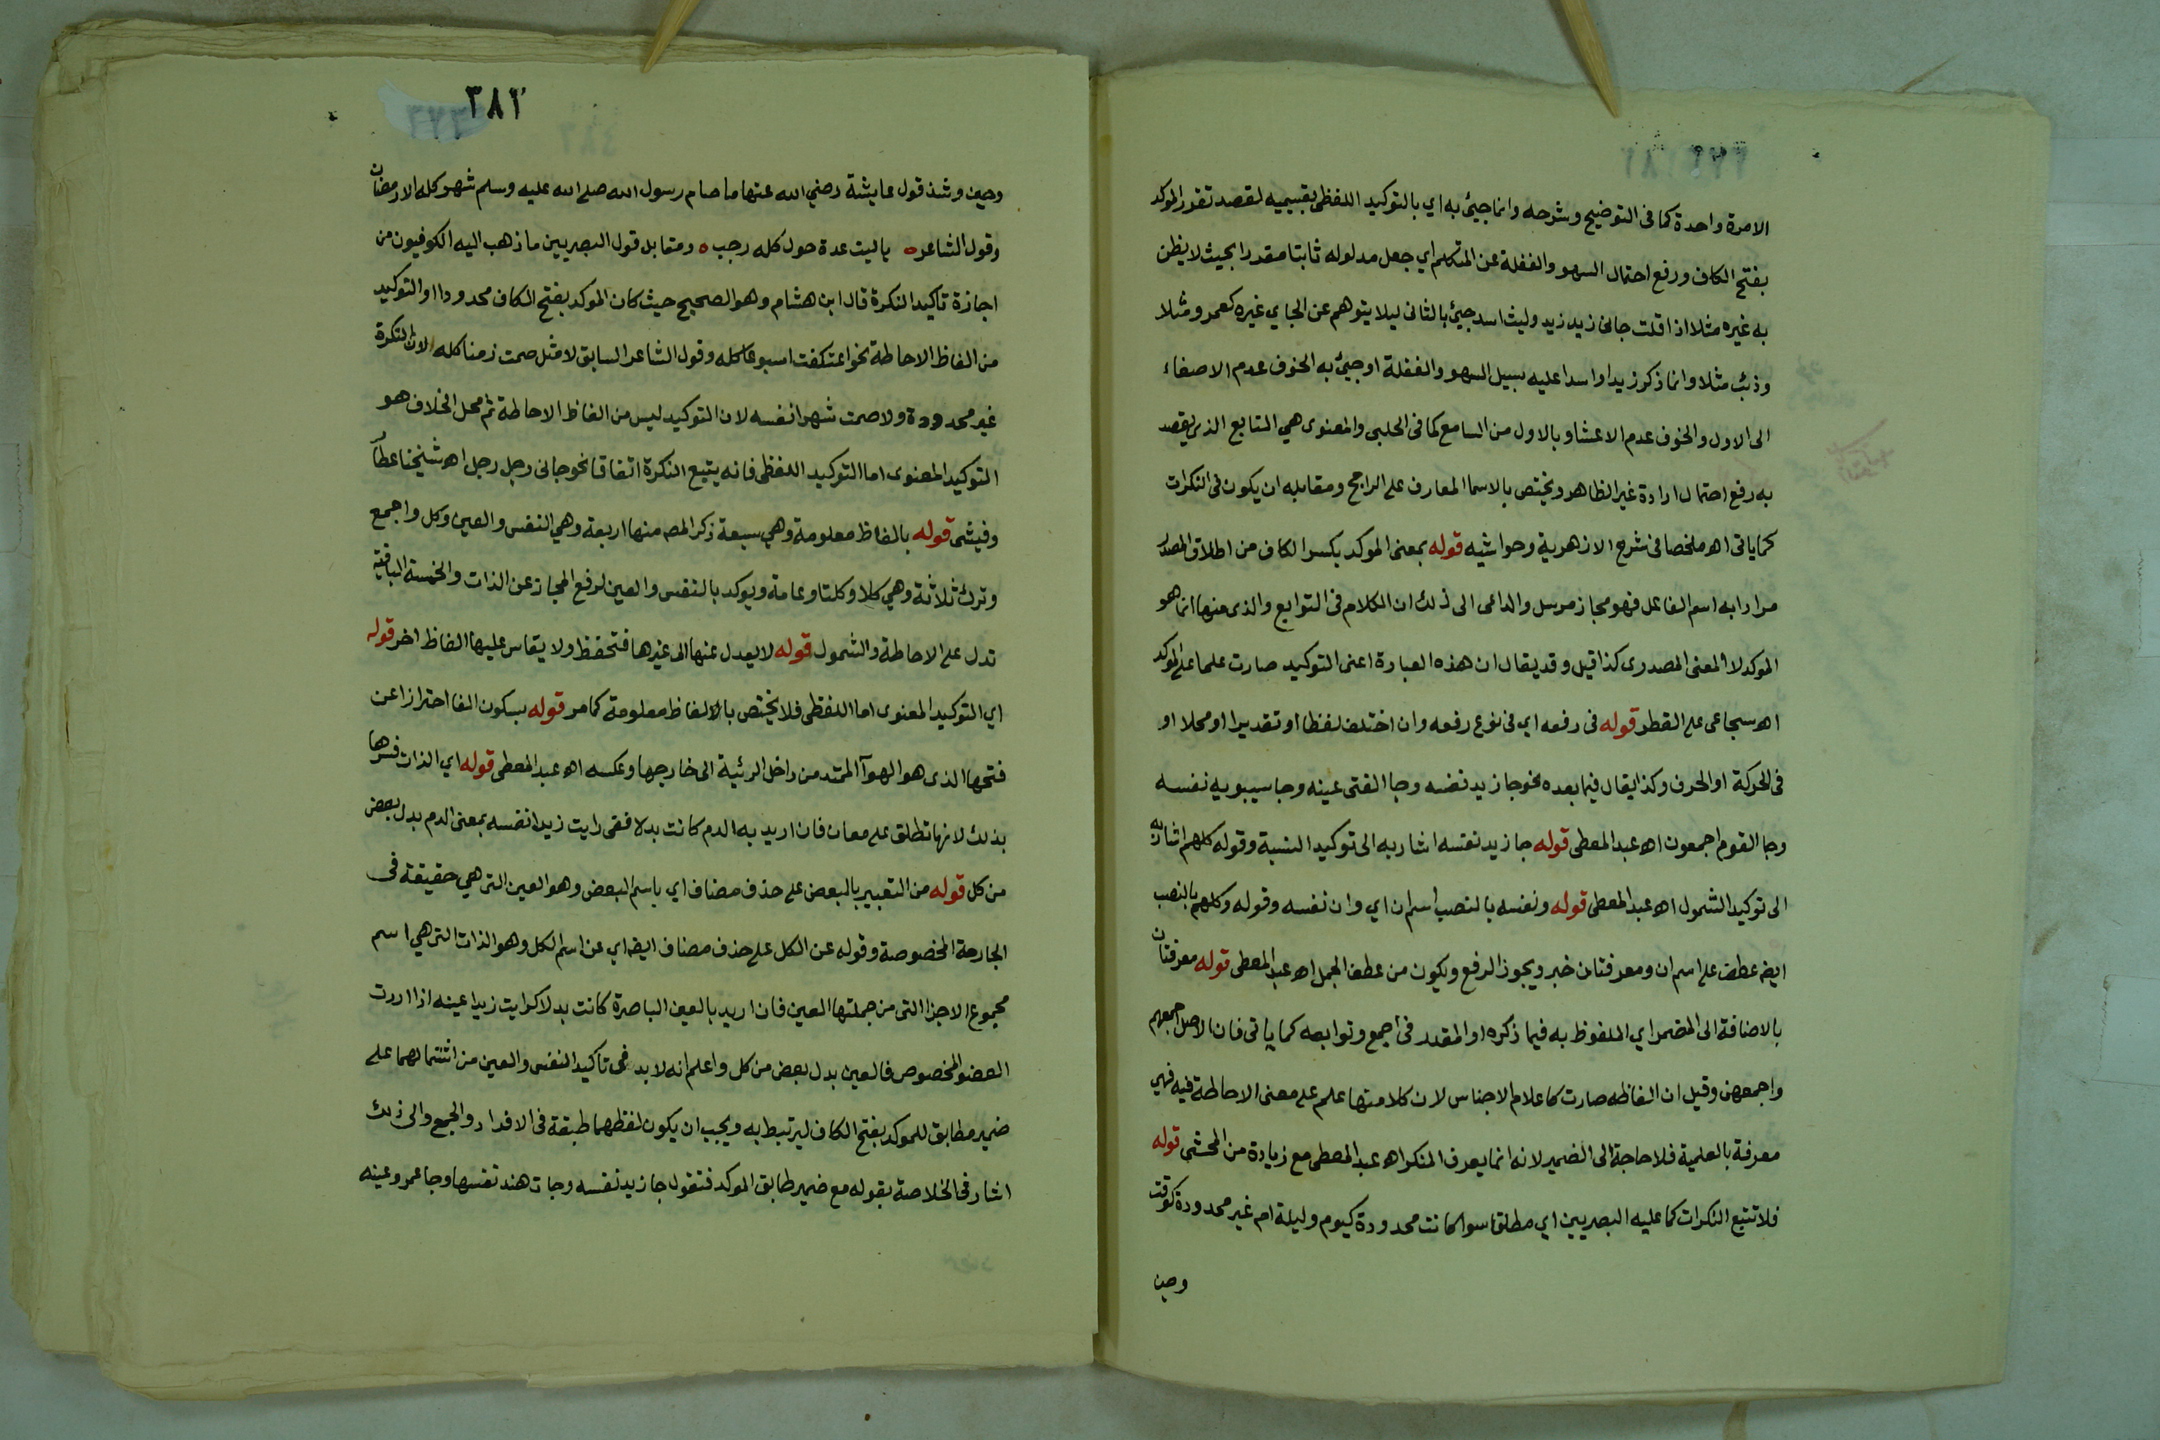 الامرة واحدة كما فى التوضيح وشرحه وانما جيئ به اي بالتوكيد اللفظى بقسيميه لقصد تقرر الموكد
بفتح الكاف ورفع احتمال السهو والغفلة عن المتكلم اي جعل مدلوله ثابتا مقدرا بحيث لا يظن
به غيره مثلا اذا قلت جانى زيد زيد وليث اسد جيئ بالثانى ليلا يتوهم عن الجاي غيره كعمرو مثلا
وذئب مثلا وانما ذكر زيدا واسدا عليه سبيل السهو والغفلة او جيئ به الخوف عدم الاصغاء
الى الاول والخوف عدم الاعشاو بالاول من السامع كما فى الحلبى والمعنوى هي التابع الذى يقصد
به رفع احتمال ارادة غير الظاهر ويختص بالاسما المعارف على الراجح ومقابله ان يكون فى النكرات
كما ياتى اه ملخصا فى شرح الازهرية وحواشيه قوله بمعنى الموكد بكسر الكاف من اطلاق المصدر
مرادا به اسم الفاعل فهو مجاز مرسل والداعى الى ذلك ان الكلام فى التوابع والذى منها انما هو
الموكد لا المعنى المصدرى كذا قيل وقد يقال ان هذه العبارة اعنى التوكيد صارت علما على الموكد
اه سجاعى على القطر قوله فى رفعه اي فى نوع رفعه وان اختلف لفظا او تقديرا او محلا او
فى الحركة او الحرف وكذا يقال فيما بعده نحو جا زيد نفسه وجا الفتى عينه وجا سيبويه نفسه
وجا القوم اجمعون اه عبد المعطى قوله جا زيد نفسه اشار به الى توكيد النسبة وقوله كلهم اشار به
الى توكيد الشمول اه عبد المعطى قوله ونفسه بالنصب اسم ان اي وان نفسه وقوله وكلهم بالنصب
ايضه عطف على اسم ان ومعرفتان خبر ويجوز الرفع ويكون من عطف الجمل اه عبد المعطى قوله معرفتان
بالاضافة الى المضمر اي الملفوظ به فيما ذكره او المقدر فى اجمع وتوابعه كما ياتى فان الاصل اجمعهم
واجمعهن وقيل ان الفاظه صارت كاعلام الاجناس لان كلا منها علم على معنى الاحاطة فيه فهي
معرفة بالعلمية فلا حاجة الى الضمير لانه انما يعرف المنكر اه عبد المعطى مع زيادة من المحشى قوله
فلا تتبع النكرات كما عليه البصريين اي مطلقا سوا كانت محدودة كيوم وليلة ام غير محدودة كوقت
وحين
٣٨٢
وحين وشذ قول عايشة رضي الله عنها ما صام رسول الله صلى الله عليه وسلم شهر كله الا رمضان
وقول الشاعر ه ياليت عدة حول كله رجب ه ومقابل قول البصريين ما ذهب اليه الكوفيون من
اجازة تاكيد النكرة قال ابن هشام وهو الصحيح حيث كان الموكد بفتح الكاف محدودا او التوكيد
من الفاظ الاحاطة نحو اعتكفت اسبوعا كله وقول الشاعر السابق لا مثل صمت زمنا كله لان النكرة
غير محدودة ولا صمت شهرا نفسه لان التوكيد ليس من الفاظ الاحاطة ثم محل الخلاف هو
التوكيد المعنوى اما التوكيد اللفظى فانه يتبع النكرة اتفاقا نحو جانى رجل رجل اه شيخنا عطا
وفيشى قوله بالفاظ معلومة وهي سبعة ذكر المصه منها اربعة وهي النفس والعين وكل واجمع
وترك ثلاثة وهي كلا وكلتا وعامة ويوكد بالنفس والعين لرفع المجاز عن الذات والخمسة الباقية
تدل على الاحاطة والشمول قوله لا يعدل عنها الى غيرها فتحفظ ولا يقاس عليها الفاظ اخر قوله
اي التوكيد المعنوى اما اللفظى فلا يختص بالالفاظ معلومة كما مر قوله بسكون الفا احترازا عن
فتحها الذى هو الهوآ الممتد من داخل الرئية الى خارجها وعكسه اه عبد المعطى قوله اي الذات فسرها
بذلك لانها تطلق على معان فان اريد به الدم كانت بدلا ففى رايت زيدا نفسه بمعنى الدم بدل بعض
من كل قوله من التعبير بالبعض على حذف مضاف اي باسم البعض وهو العين التى هي حقيقة فى
الجارحة المخصوصة وقوله عن الكل على حذف مضاف ايضه اي عن اسم الكل وهو الذات التى هي اسم
مجموع الاجزا التى من جملتها العين فان اريد بالعين الباصرة كانت بدلا كرايت زيدا عينه اذا اردت
العضو المخصوص فالعين بدل بعض من كل واعلم انه لا بد فى تاكيد النفس والعين من اشتمالهما على
ضمير مطابق للموكد بفتح الكاف ليرتبط به ويجب ان يكون لفظهما طبقة فى الافراد والجمع والى ذلك
اشار فى الخلاصة بقوله مع ضمير طابق الموكد فتقول جا زيد نفسه وجات هند نفسها وجا عمرو عينه